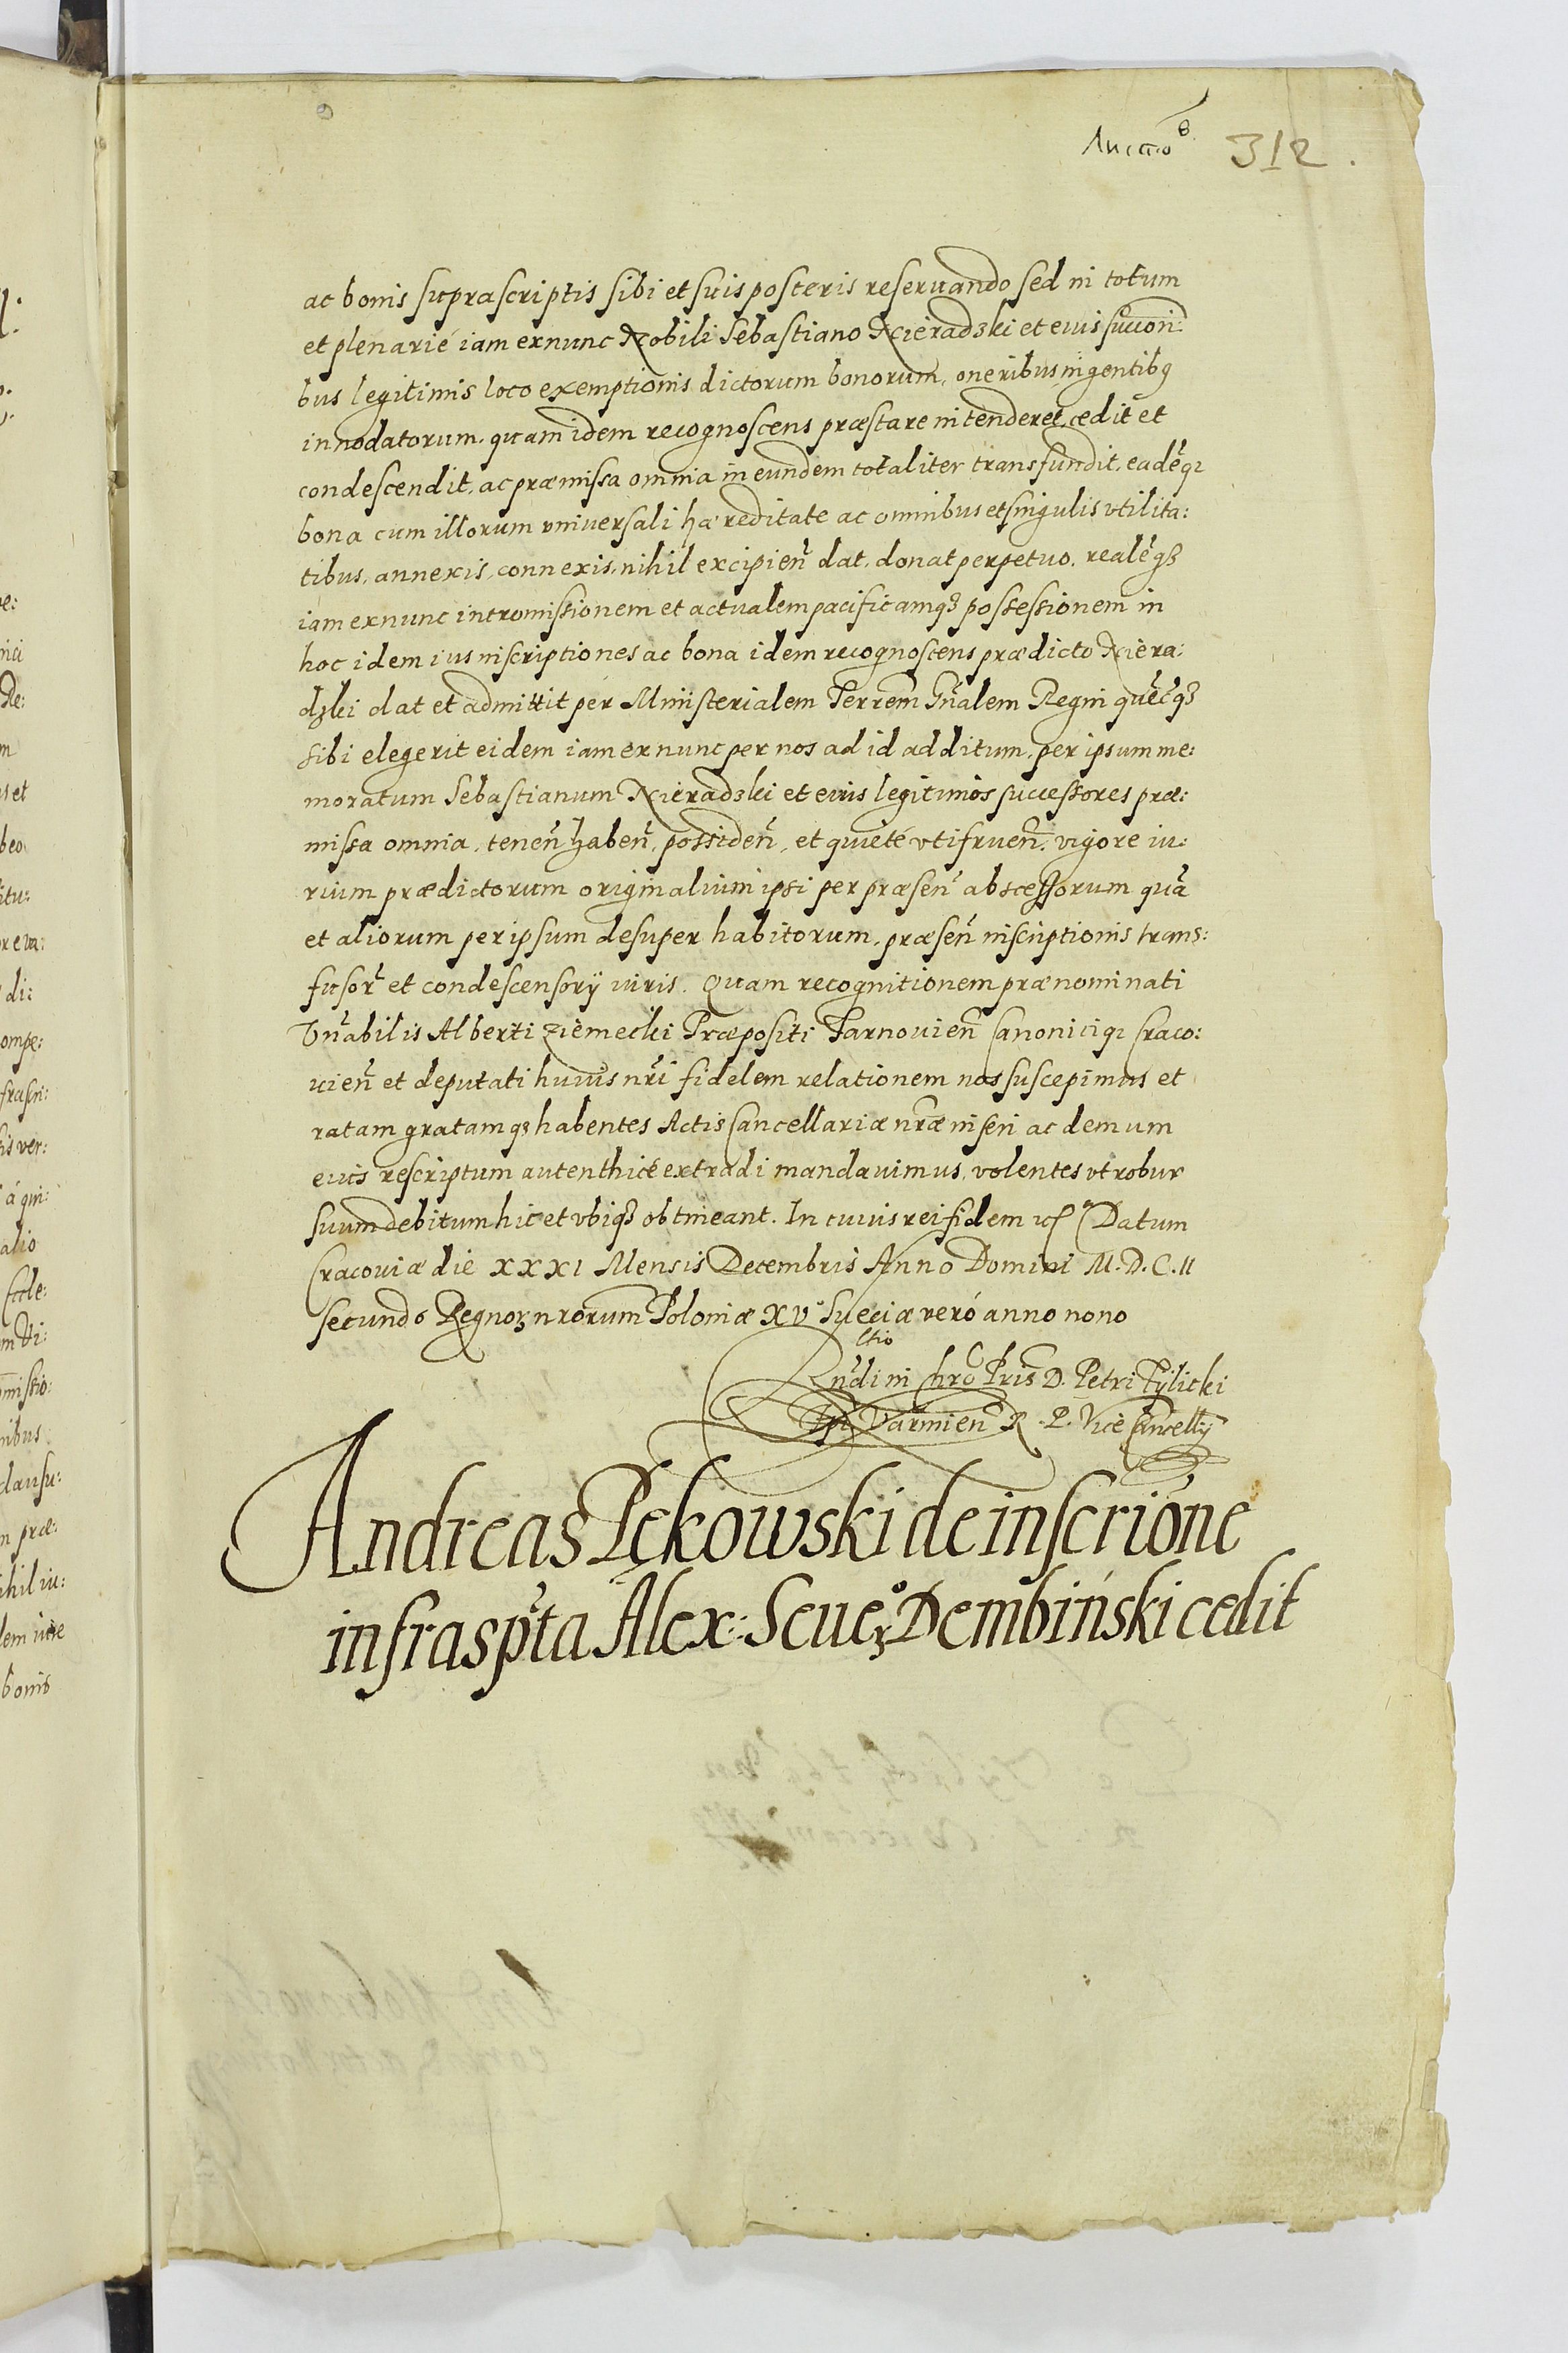 Листов 312.
ac bonis suprascriptis sibi et suis posteris reseruando sed in totum
et plenarié iam exnunc Nobili Sebastiano Nieradzki et eius succon̄
bus legitimis loco exemptionis dictorum bonorum, oneribus ingentibꝫ
innodatorum, quam idem recognoscens præstare intenderet, cedit et
condescendit, ac præmissa omnia in eundem totaliter transfundit, eadēqꝫ
bona cum illorum vniuersali hæreditate ac omnibus et singulis vtilita:
tibus, annexis, connexis, nihil excipien̄ dat, donat perpetuo, realēqꝫ
iam exnunc intromissionem et actualem pacificamqꝫ possessionem in
hoc idem ius inscriptiones ac bona idem recognoscens prædicto Niera:
dzki dat et admittit per Ministerialem Terrem̄ Gn̄alem Regni quēcqꝫ
sibi elegerit eidem iam exnunc per nos ad id additum, per ipsum me:
moratum Sebastianum Nieradzki et eius legitimos successores præ:
missa omnia, tenen̄ haben̄, possiden̄, et quieté vtifruen̄, vigore iu:
rium prædictorum originalium ipsi per præsen̄ abscessorum quā
et aliorum per ipsum desuper habitorum, præsen̄ inscriptionis trans:
fusor̄ et condescensorÿ iuris. Quam recognitionem prænominati
Vn̄abilis Alberti Ziemecki Præpositi Tarnouien̄ Canoniciqꝫ Craco:
uien̄ et deputati huius nr̄i fidelem relationem nos suscepimus et
ratam gratamqꝫ habentes Actis Cancellariæ nr̄æ inseri ac demum
eius rescriptum autenthicé extradi mandauimus, volentes vt robur
suum debitum hic et vbiqꝫ obtineant. In cuius rei fidem ꝛcꝭ Datum
Cracouiæ die XXXI Mensis Decembris Anno Domini M.D.C.II
secundo Regnoꝝ nrorum Poloniæ XVᵒ Sueciæ veró anno nono
ltio
Rn̄di in Chrō Pris D. Petri Tÿlicki
Epi Varmien̄ R. P. Vice Cancellÿ
Andreas Pękowski de inscrióne
infraspta Alex: Seueꝝᵒ Dembiński cedit